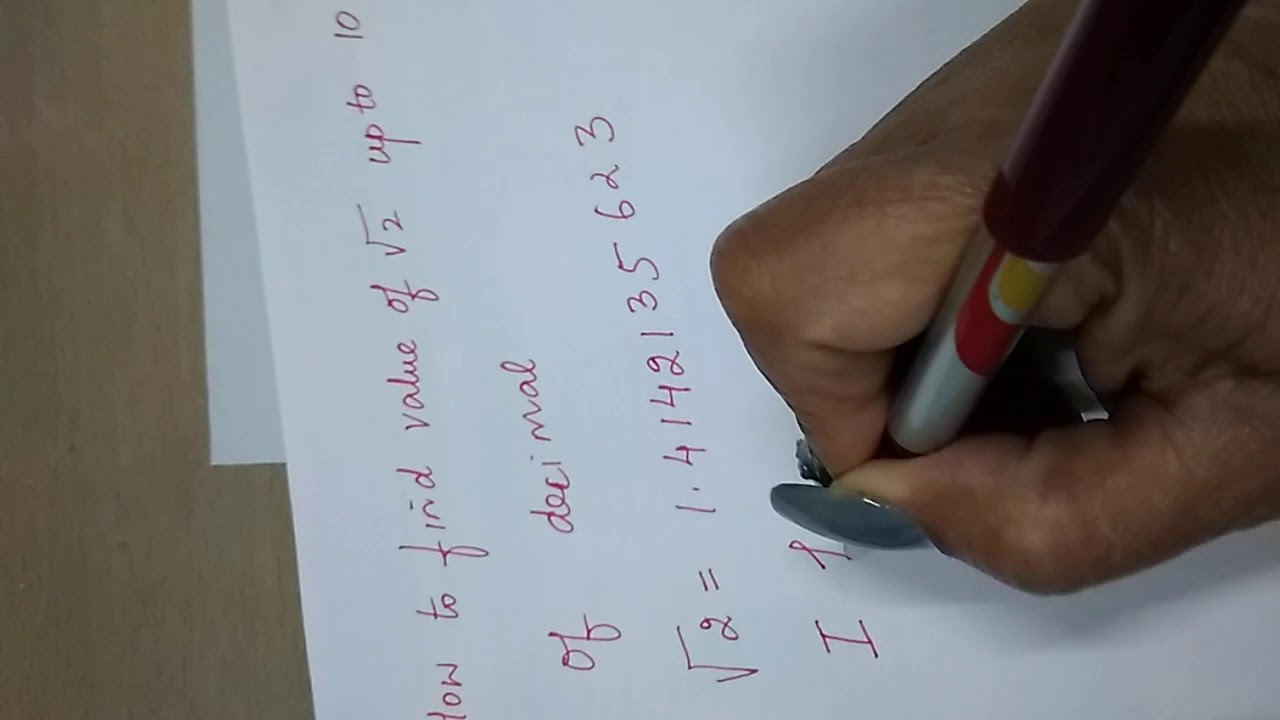 How to find value of √2 up to 10
of decimal
√2 = 1.4142135623
I